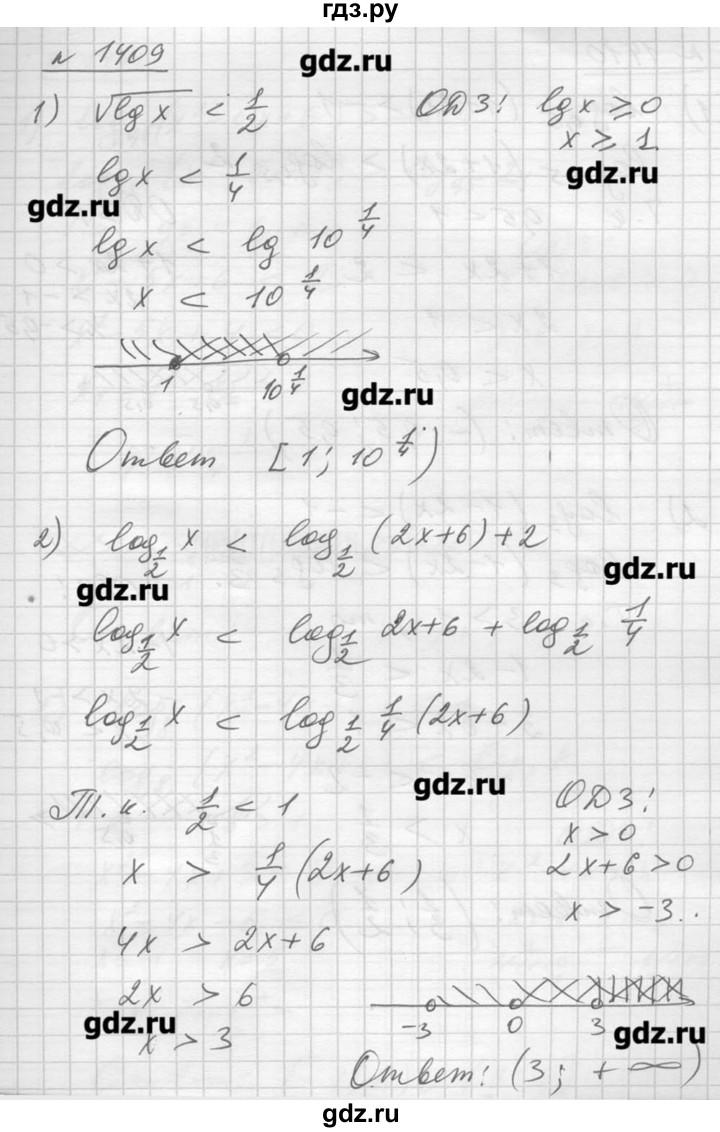 гдз.ру
n 1409
gdz.ru
1) √lg x < 1/2 ОДЗ: lg x ≥ 0
x ≥ 1
gdz.ru
lg x < 1/4
gdz.ru
lg x < lg 10^(1/4)
x < 10^(1/4)
1 10^(1/4)
gdz.ru
Ответ [1; 10^(1/4))
2) log_(1/2) x < log_(1/2) (2x+6) + 2
gdz.ru
gdz.ru
log_(1/2) x < log_(1/2) 2x+6 + log_(1/2) 1/4
log_(1/2) x < log_(1/2) 1/4 (2x+6)
gdz.ru
Т.к. 1/2 < 1 ОДЗ:
x > 0
x > 1/4 (2x+6) 2x+6 > 0
x > -3
4x > 2x+6
2x > 6
-3 0 3
gdz.ru
gdz.ru
x > 3
Ответ: (3; +∞)
gdz.ru